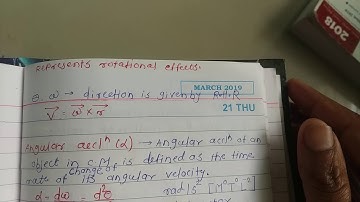 represents rotational effects.
ω → direction is given by R.H.R
MARCH 2019
21 THU
V⃗ = ω⃗ × r⃗
Angular accl^n (α) → Angular accl^n of an
object in C.M is defined as the time
rate of change of its angular velocity.
α = dω = d²θ
rad/s² [M⁰T⁰L⁰]
2018